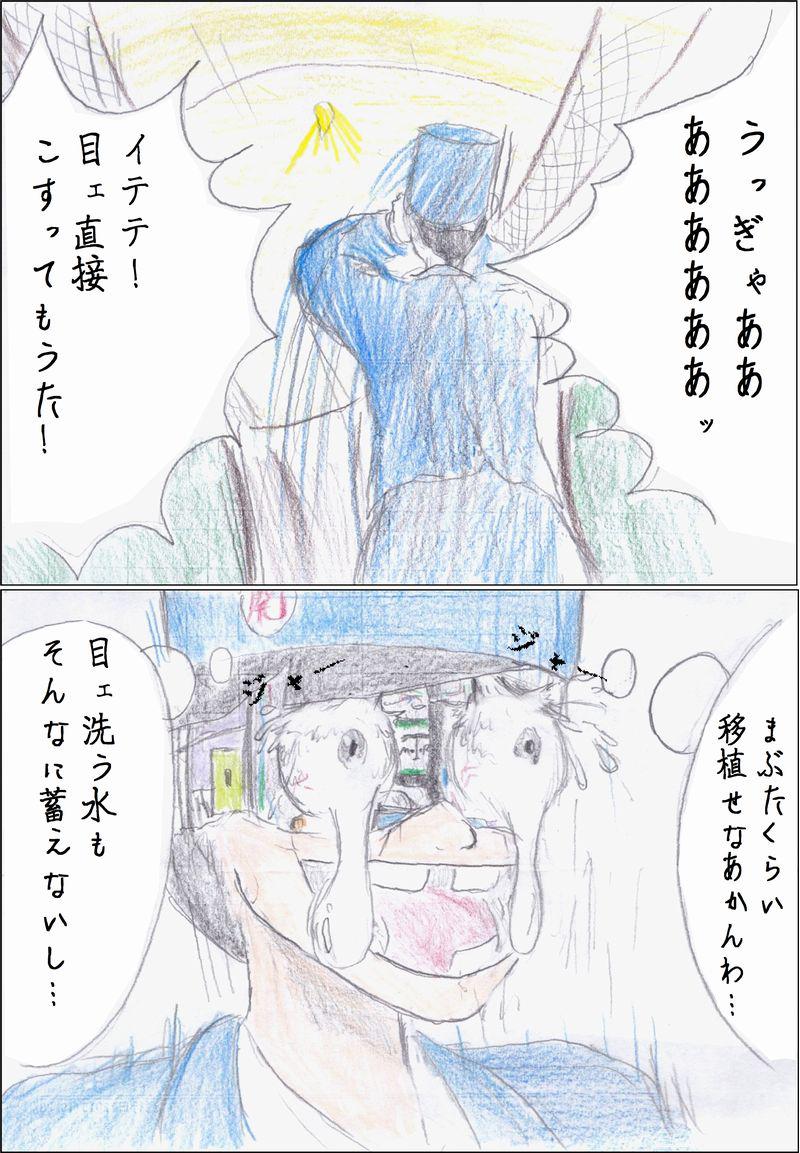 うっぎゃああ
ああああああッ
イテテ！
目ェ直接
こすってもうた！
まぶたくらい
移植せなあかんわ…
ジャー
ジャー
目ェ洗う水も
そんなに蓄えないし…